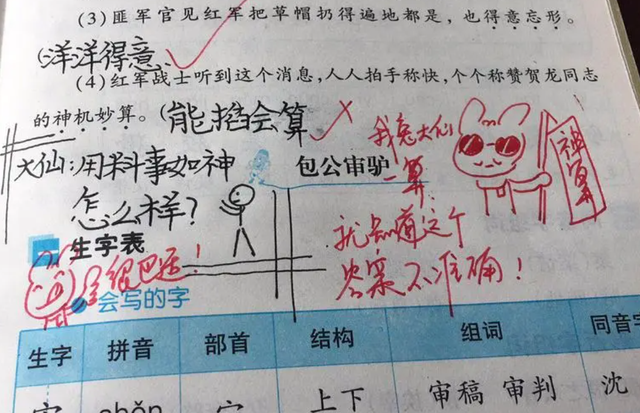 (3)匪军官见红军把草帽扔得遍地都是,也得意忘形。
(洋洋得意)
(4)红军战士听到这个消息,人人拍手称快,个个称赞贺龙同志
的神机妙算。(能掐会算
我兔大仙
一算,
就知道这个
答案不准确!
神算
大仙:用料事如神
怎么样?
包公审驴
生字表
会写的字
生字 拼音 部首 结构 组词 同音字
审 shěn 宀 上下 审稿 审判 沈